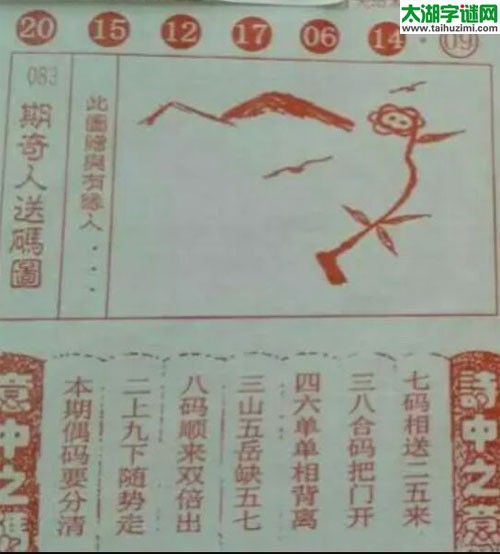 太湖字谜网
www.taihuzimi.com
20 15 12 17 06 14 09
083
期奇人送碼圖
此圖贈與有緣人....
七码相送二五来
三八合码把门开
四六单单相背离
三山五岳缺五七
八码顺来双倍出
二上九下随势走
本期偶码要分清